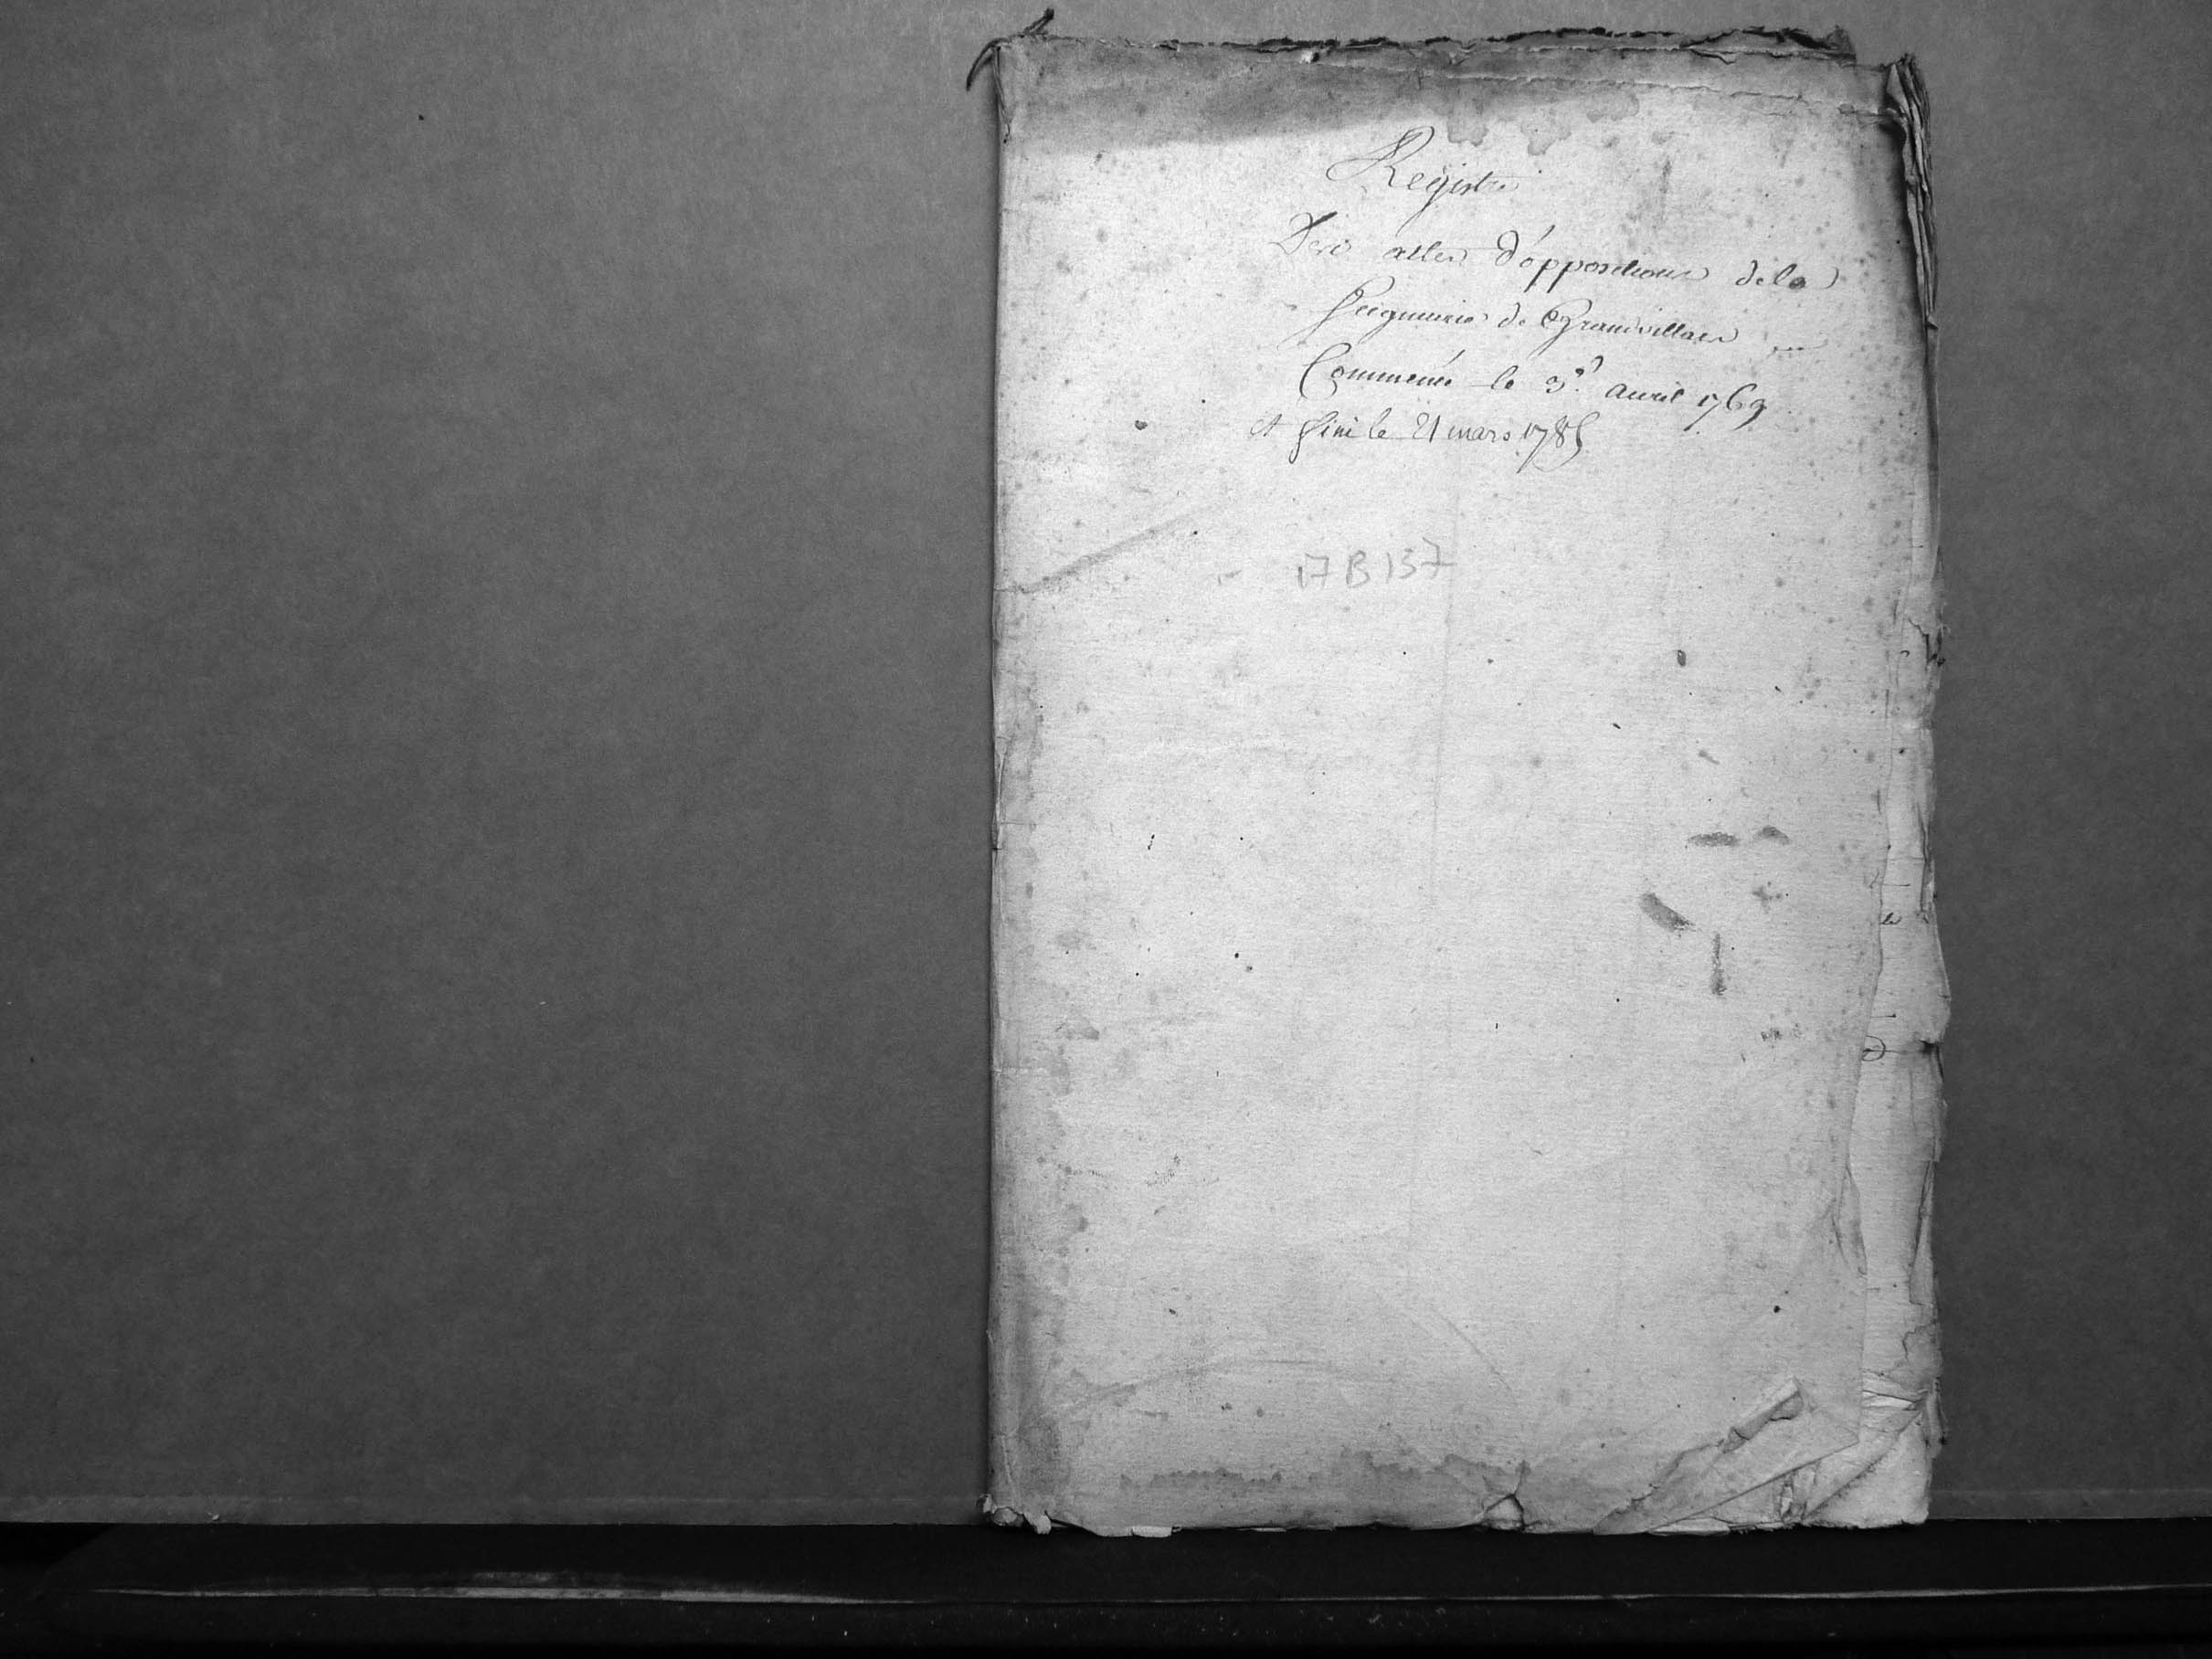 Registre
Des actes d'oppositions de la
Seigneurie de Grandvillars
Commencé le 3e. avril 1769
et fini le 21 mars 1785
17 B 137